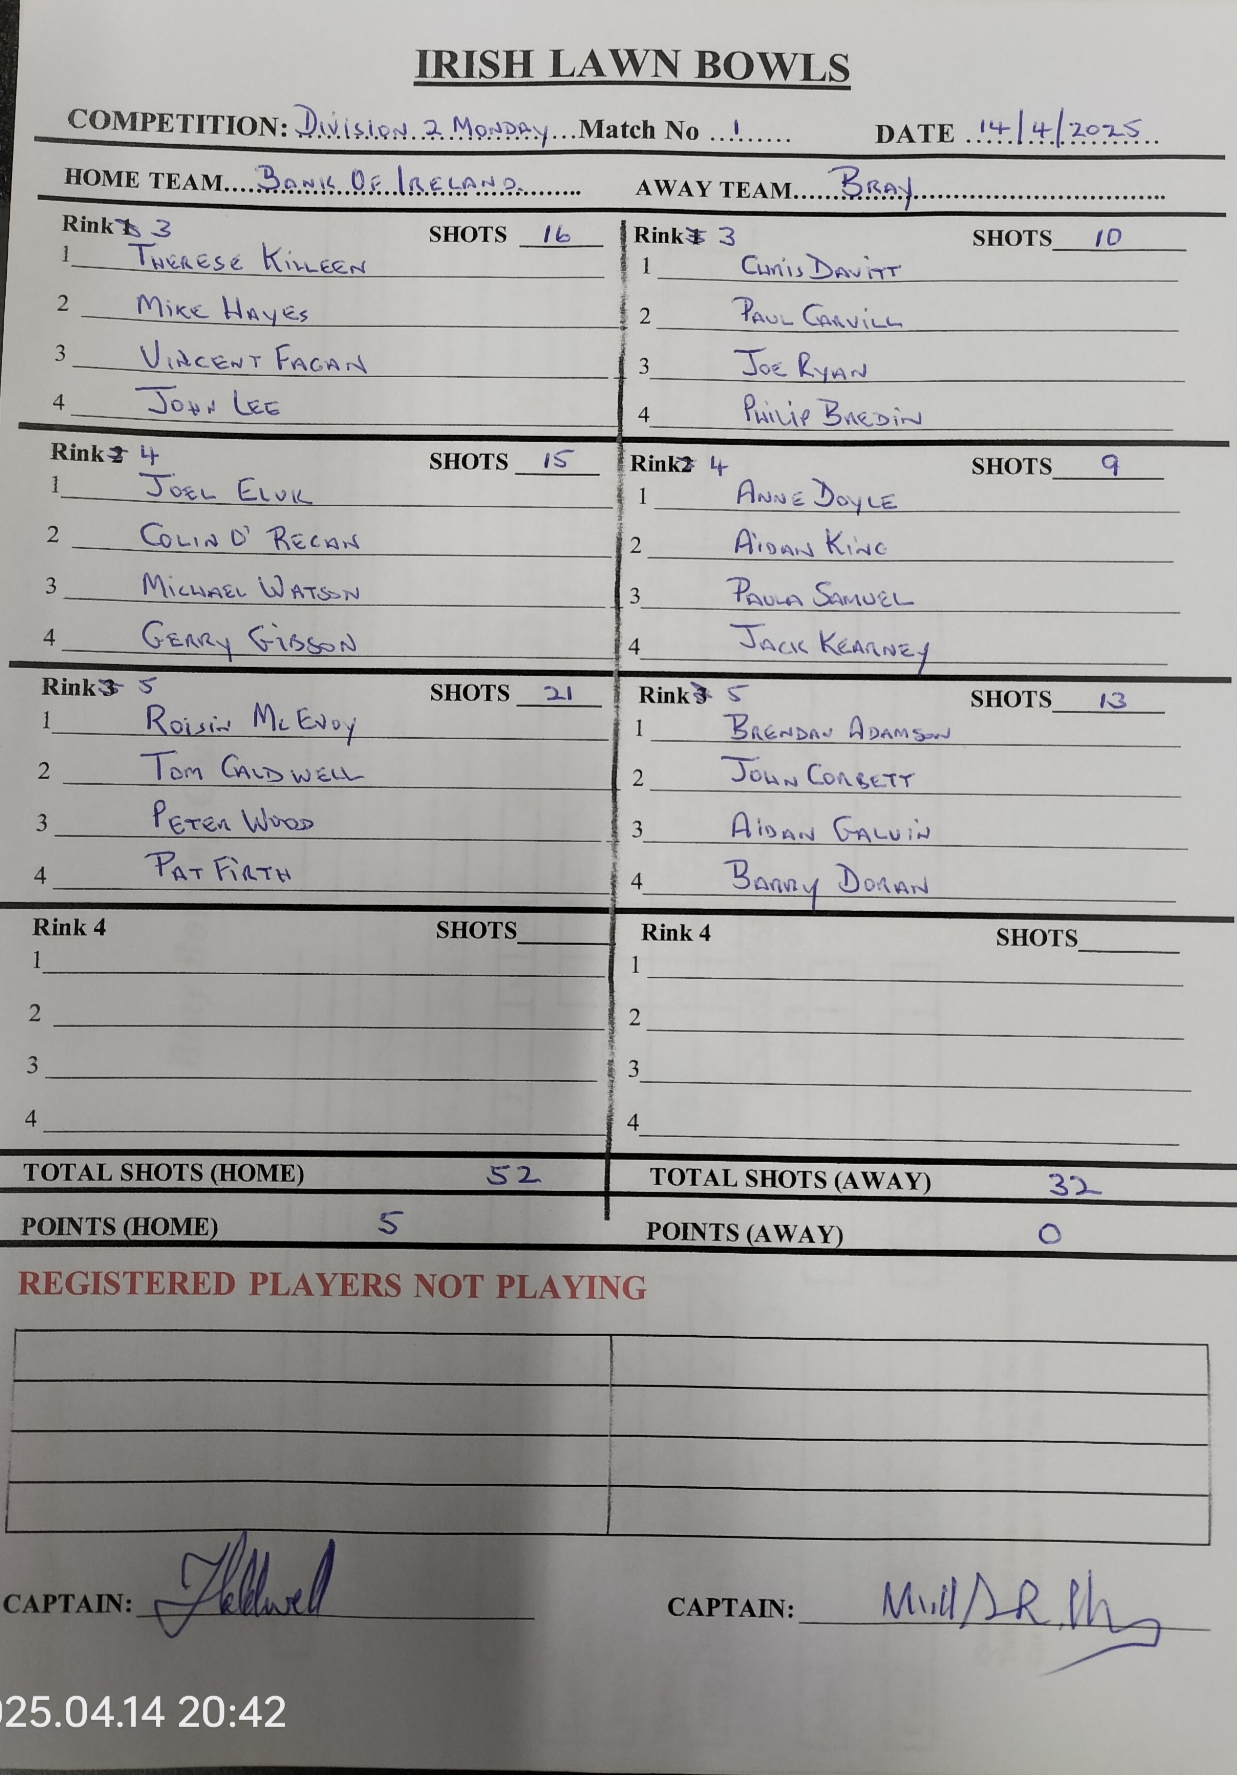 IRISH LAWN BOWLS
COMPETITION: Division 2 Monday Match No 1 DATE 14/4/2025
HOME TEAM Bank Of Ireland AWAY TEAM Bray
Rink 3 SHOTS 16 Rink 3 SHOTS 10
1 Therese Killeen 1 Chris Davitt
2 Mike Hayes 2 Paul Carvill
3 Vincent Fagan 3 Joe Ryan
4 John Lee 4 Philip Bredin
Rink 4 SHOTS 15 Rink 4 SHOTS 9
1 Joel 1 Anne Doyle
2 Colin O' Regan 2 Aidan King
3 Michael Watson 3 Paula Samuel
4 Gerry Gibson 4 Jack Kearney
Rink 5 SHOTS 21 Rink 5 SHOTS 13
1 Roisin McEvoy 1 Brendan Adamson
2 Tom Caldwell 2 John Corbett
3 Peter Wood 3 Aidan Galvin
4 Pat Firth 4 Barry Doran
Rink 4 SHOTS Rink 4 SHOTS
1 1
2 2
3 3
4 4
TOTAL SHOTS (HOME) 52 TOTAL SHOTS (AWAY) 32
POINTS (HOME) 5 POINTS (AWAY) 0
REGISTERED PLAYERS NOT PLAYING
CAPTAIN: CAPTAIN:
025.04.14 20:42